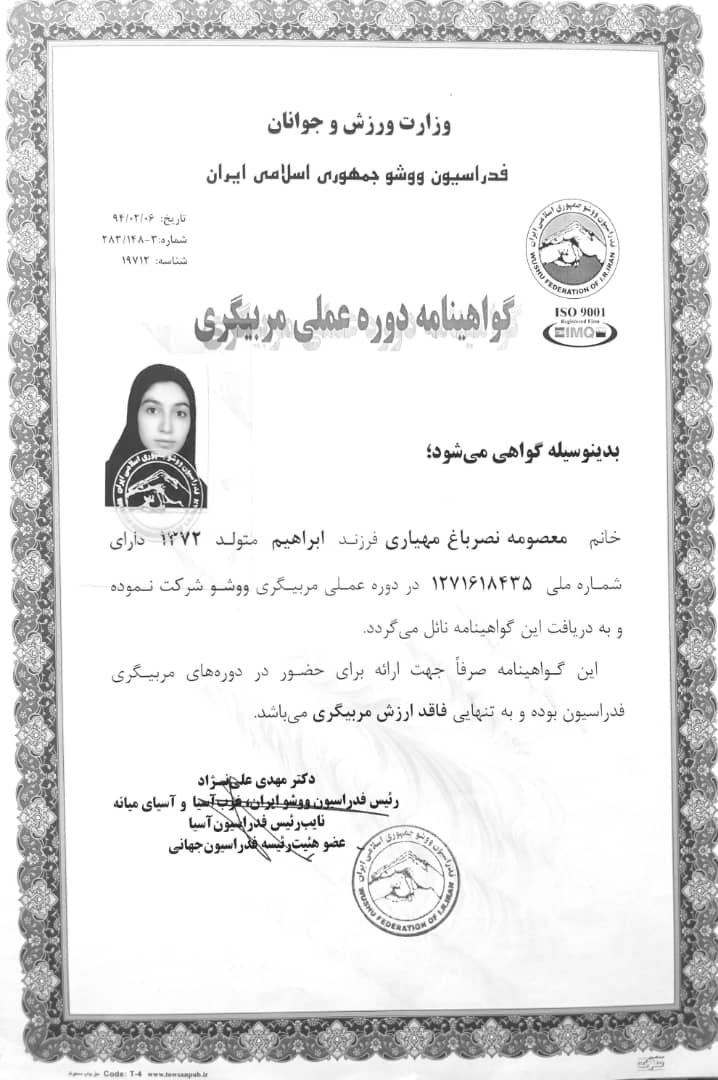 وزارت ورزش و جوانان
فدراسیون ووشو جمهوری اسلامی ایران
تاریخ: ۹۴/۰۲/۰۶
شماره: ۳-۲۸۳/۱۴۸
شناسه: ۱۹۷۱۲
فدراسیون ووشو جمهوری اسلامی ایران
WUSHU FEDERATION OF I.R.IRAN
ISO 9001
Registered Firm
IMQ
گواهینامه دوره عملی مربیگری
بدینوسیله گواهی می‌شود؛
خانم معصومه نصرباغ مهیاری فرزند ابراهیم متولد ۱۳۷۲ دارای
شماره ملی ۱۲۷۱۶۱۸۴۳۵ در دوره عملی مربیگری ووشو شرکت نموده
و به دریافت این گواهینامه نائل می‌گردد.
این گواهینامه صرفاً جهت ارائه برای حضور در دوره‌های مربیگری
فدراسیون بوده و به تنهایی فاقد ارزش مربیگری می‌باشد.
دکتر مهدی علی‌نژاد
رئیس فدراسیون ووشو ایران، غرب آسیا و آسیای میانه
نایب رئیس فدراسیون آسیا
عضو هئیت‌رئیسه فدراسیون جهانی
فدراسیون ووشو جمهوری اسلامی ایران
WUSHU FEDERATION OF I.R.IRAN
Code: T-4 www.towsanpub.ir